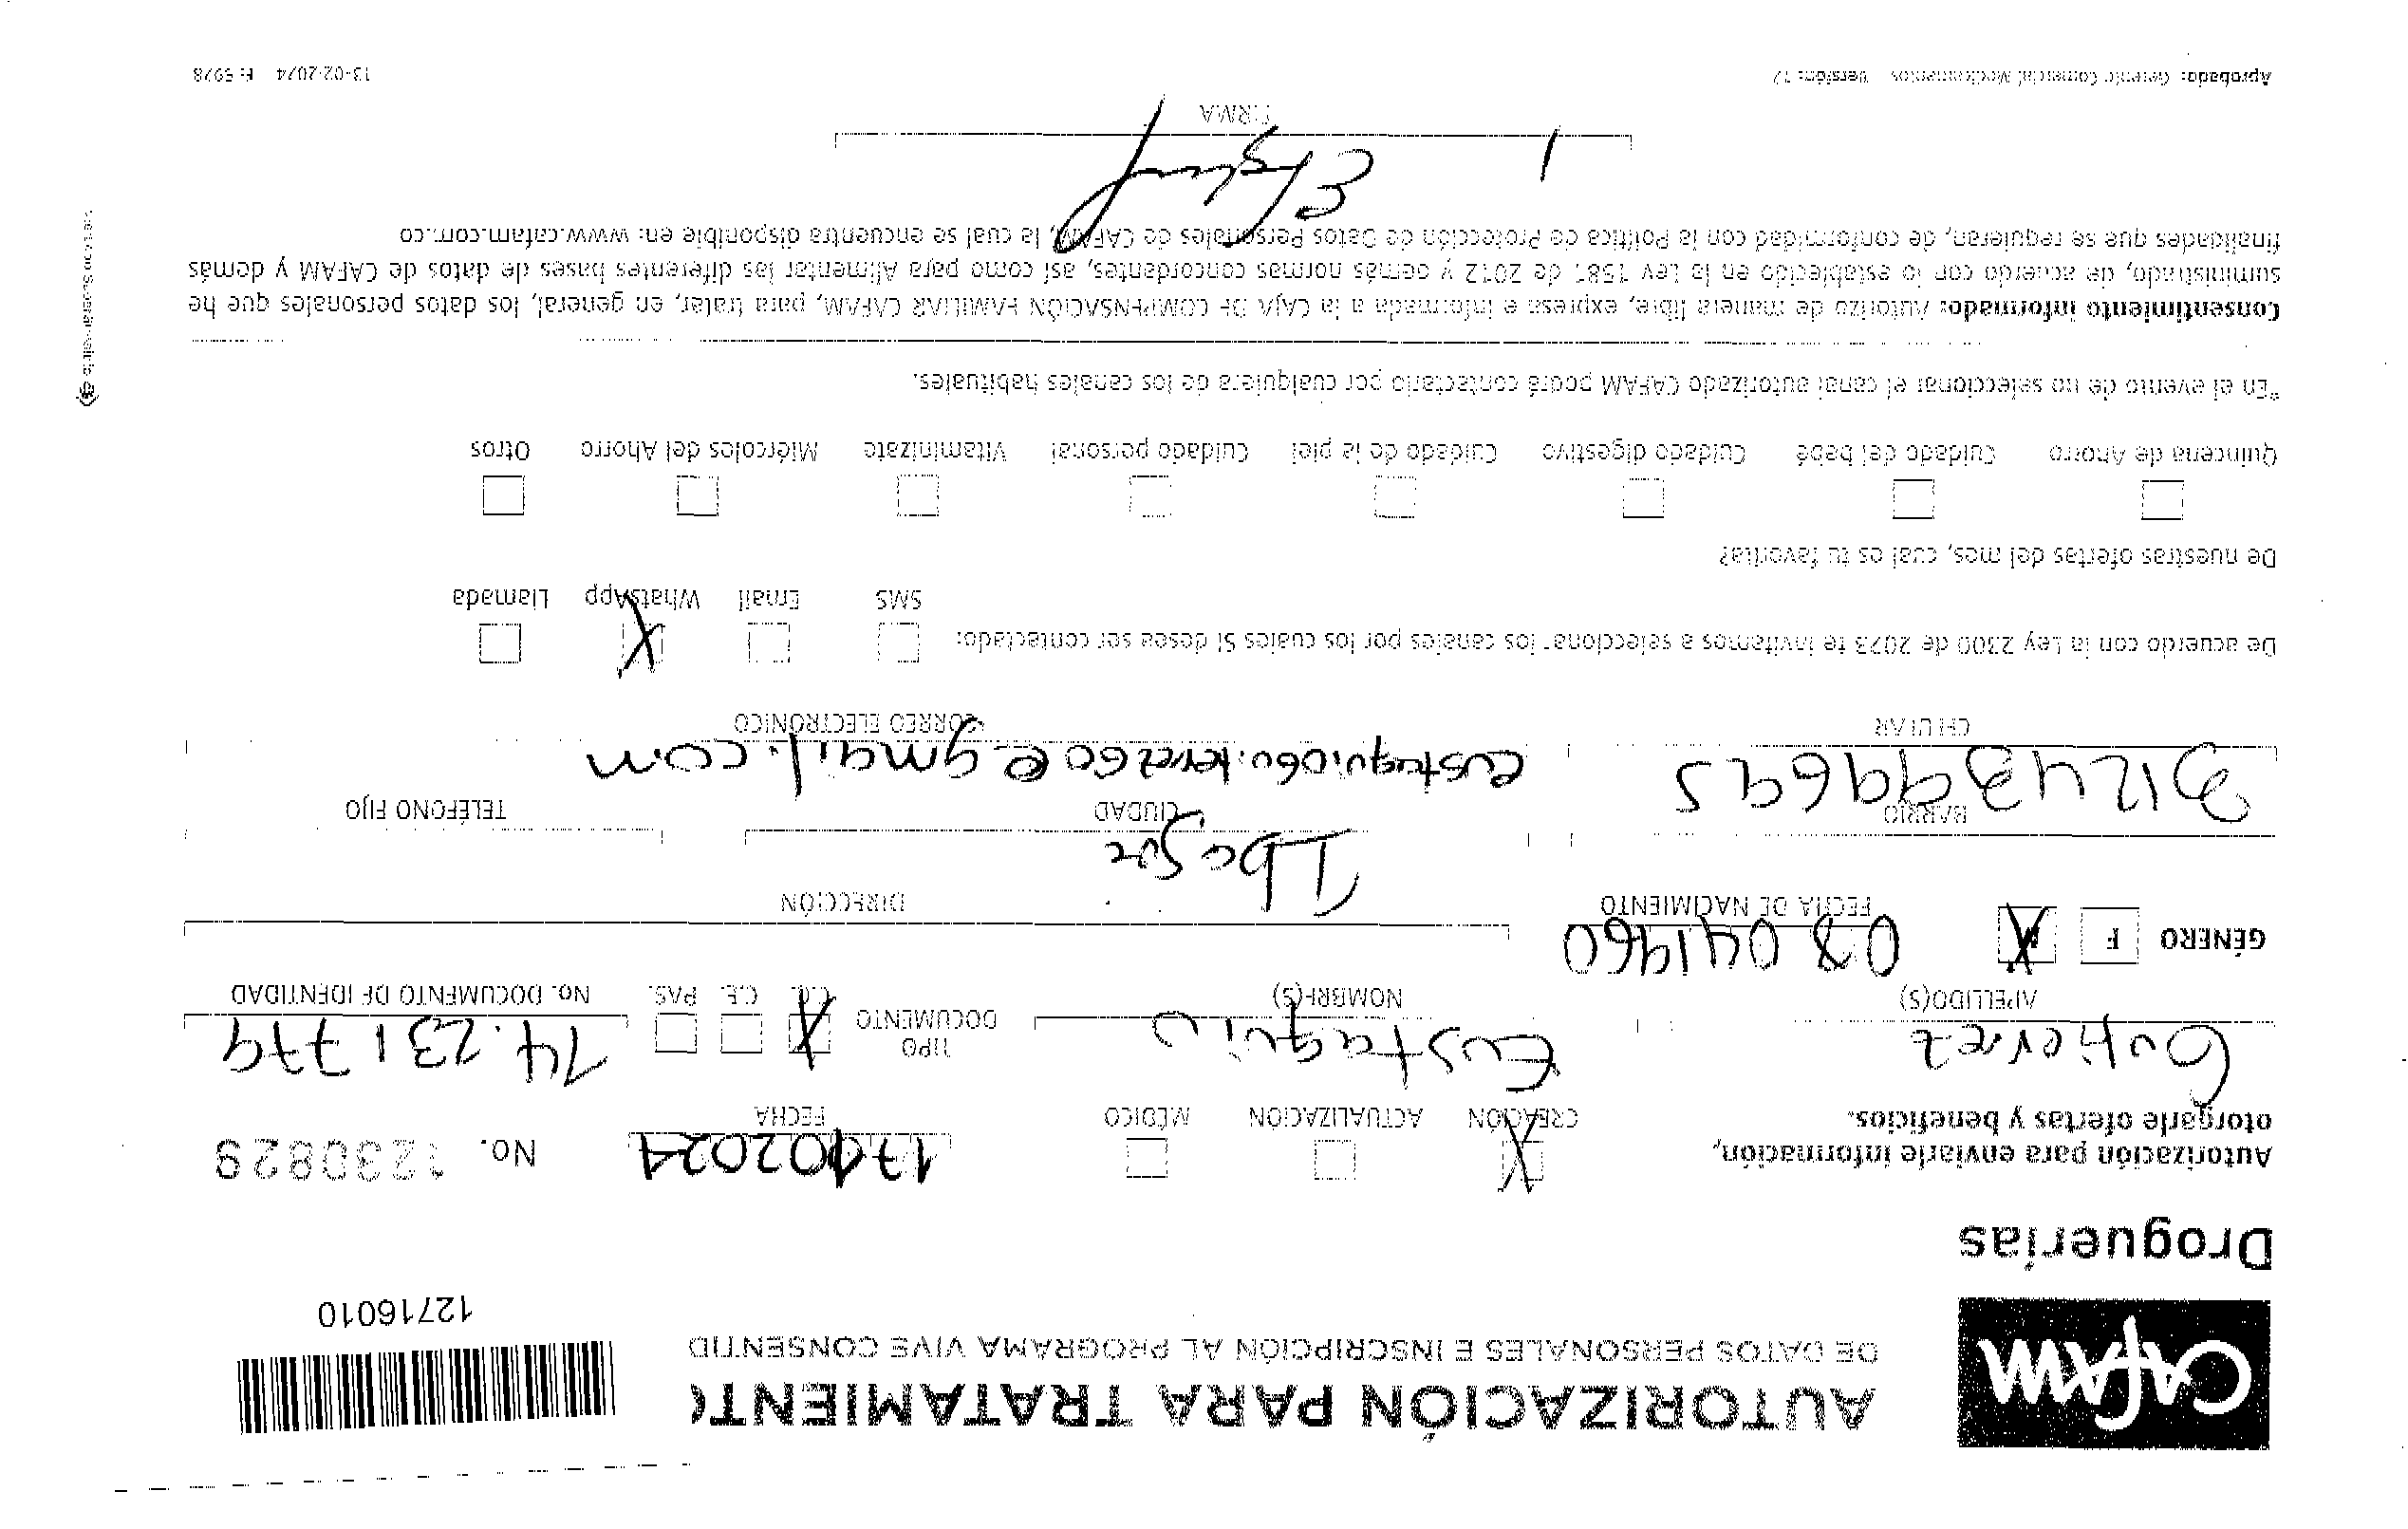 cafam
Droguerías
AUTORIZACIÓN PARA TRATAMIENTO
DE DATOS PERSONALES E INSCRIPCIÓN AL PROGRAMA VIVE CONSENTID
12716010
Autorización para enviarle información,
otorgarle ofertas y beneficios.
X CREACIÓN ACTUALIZACIÓN MÉDICO
17102024
FECHA
No. 1230829
Gutierrez
APELLIDO(S)
Eustaquio
NOMBRE(S)
TIPO DOCUMENTO X C.C. C.E. PAS.
14.231.779
No. DOCUMENTO DE IDENTIDAD
GÉNERO F X
08041960
FECHA DE NACIMIENTO
DIRECCIÓN
BARRIO
Ibague
CIUDAD
TELÉFONO FIJO
3124399695
CELULAR
CORREO ELECTRÓNICO
De acuerdo con la Ley 2300 de 2023 te invitamos a seleccionar los canales por los cuales SI desea ser contactado:
SMS Email X WhatsApp Llamada
De nuestras ofertas del mes, cual es tu favorita?
Quincena de Ahorro Cuidado del bebé Cuidado digestivo Cuidado de la piel Cuidado personal Vitaminízate Miércoles del Ahorro Otros
*En el evento de no seleccionar el canal autorizado CAFAM podrá contactarlo por cualquiera de los canales habituales.
Consentimiento informado: Autorizo de manera libre, expresa e informada a la CAJA DE COMPENSACIÓN FAMILIAR CAFAM, para tratar, en general, los datos personales que he
suministrado, de acuerdo con lo establecido en la Ley 1581 de 2012 y demás normas concordantes, así como para Alimentar las diferentes bases de datos de CAFAM y demás
finalidades que se requieran, de conformidad con la Política de Protección de Datos Personales de CAFAM, la cual se encuentra disponible en: www.cafam.com.co
FIRMA
Aprobado: Gerente Comercial Medicamentos Versión: 12
13-02-2024 F: 5978